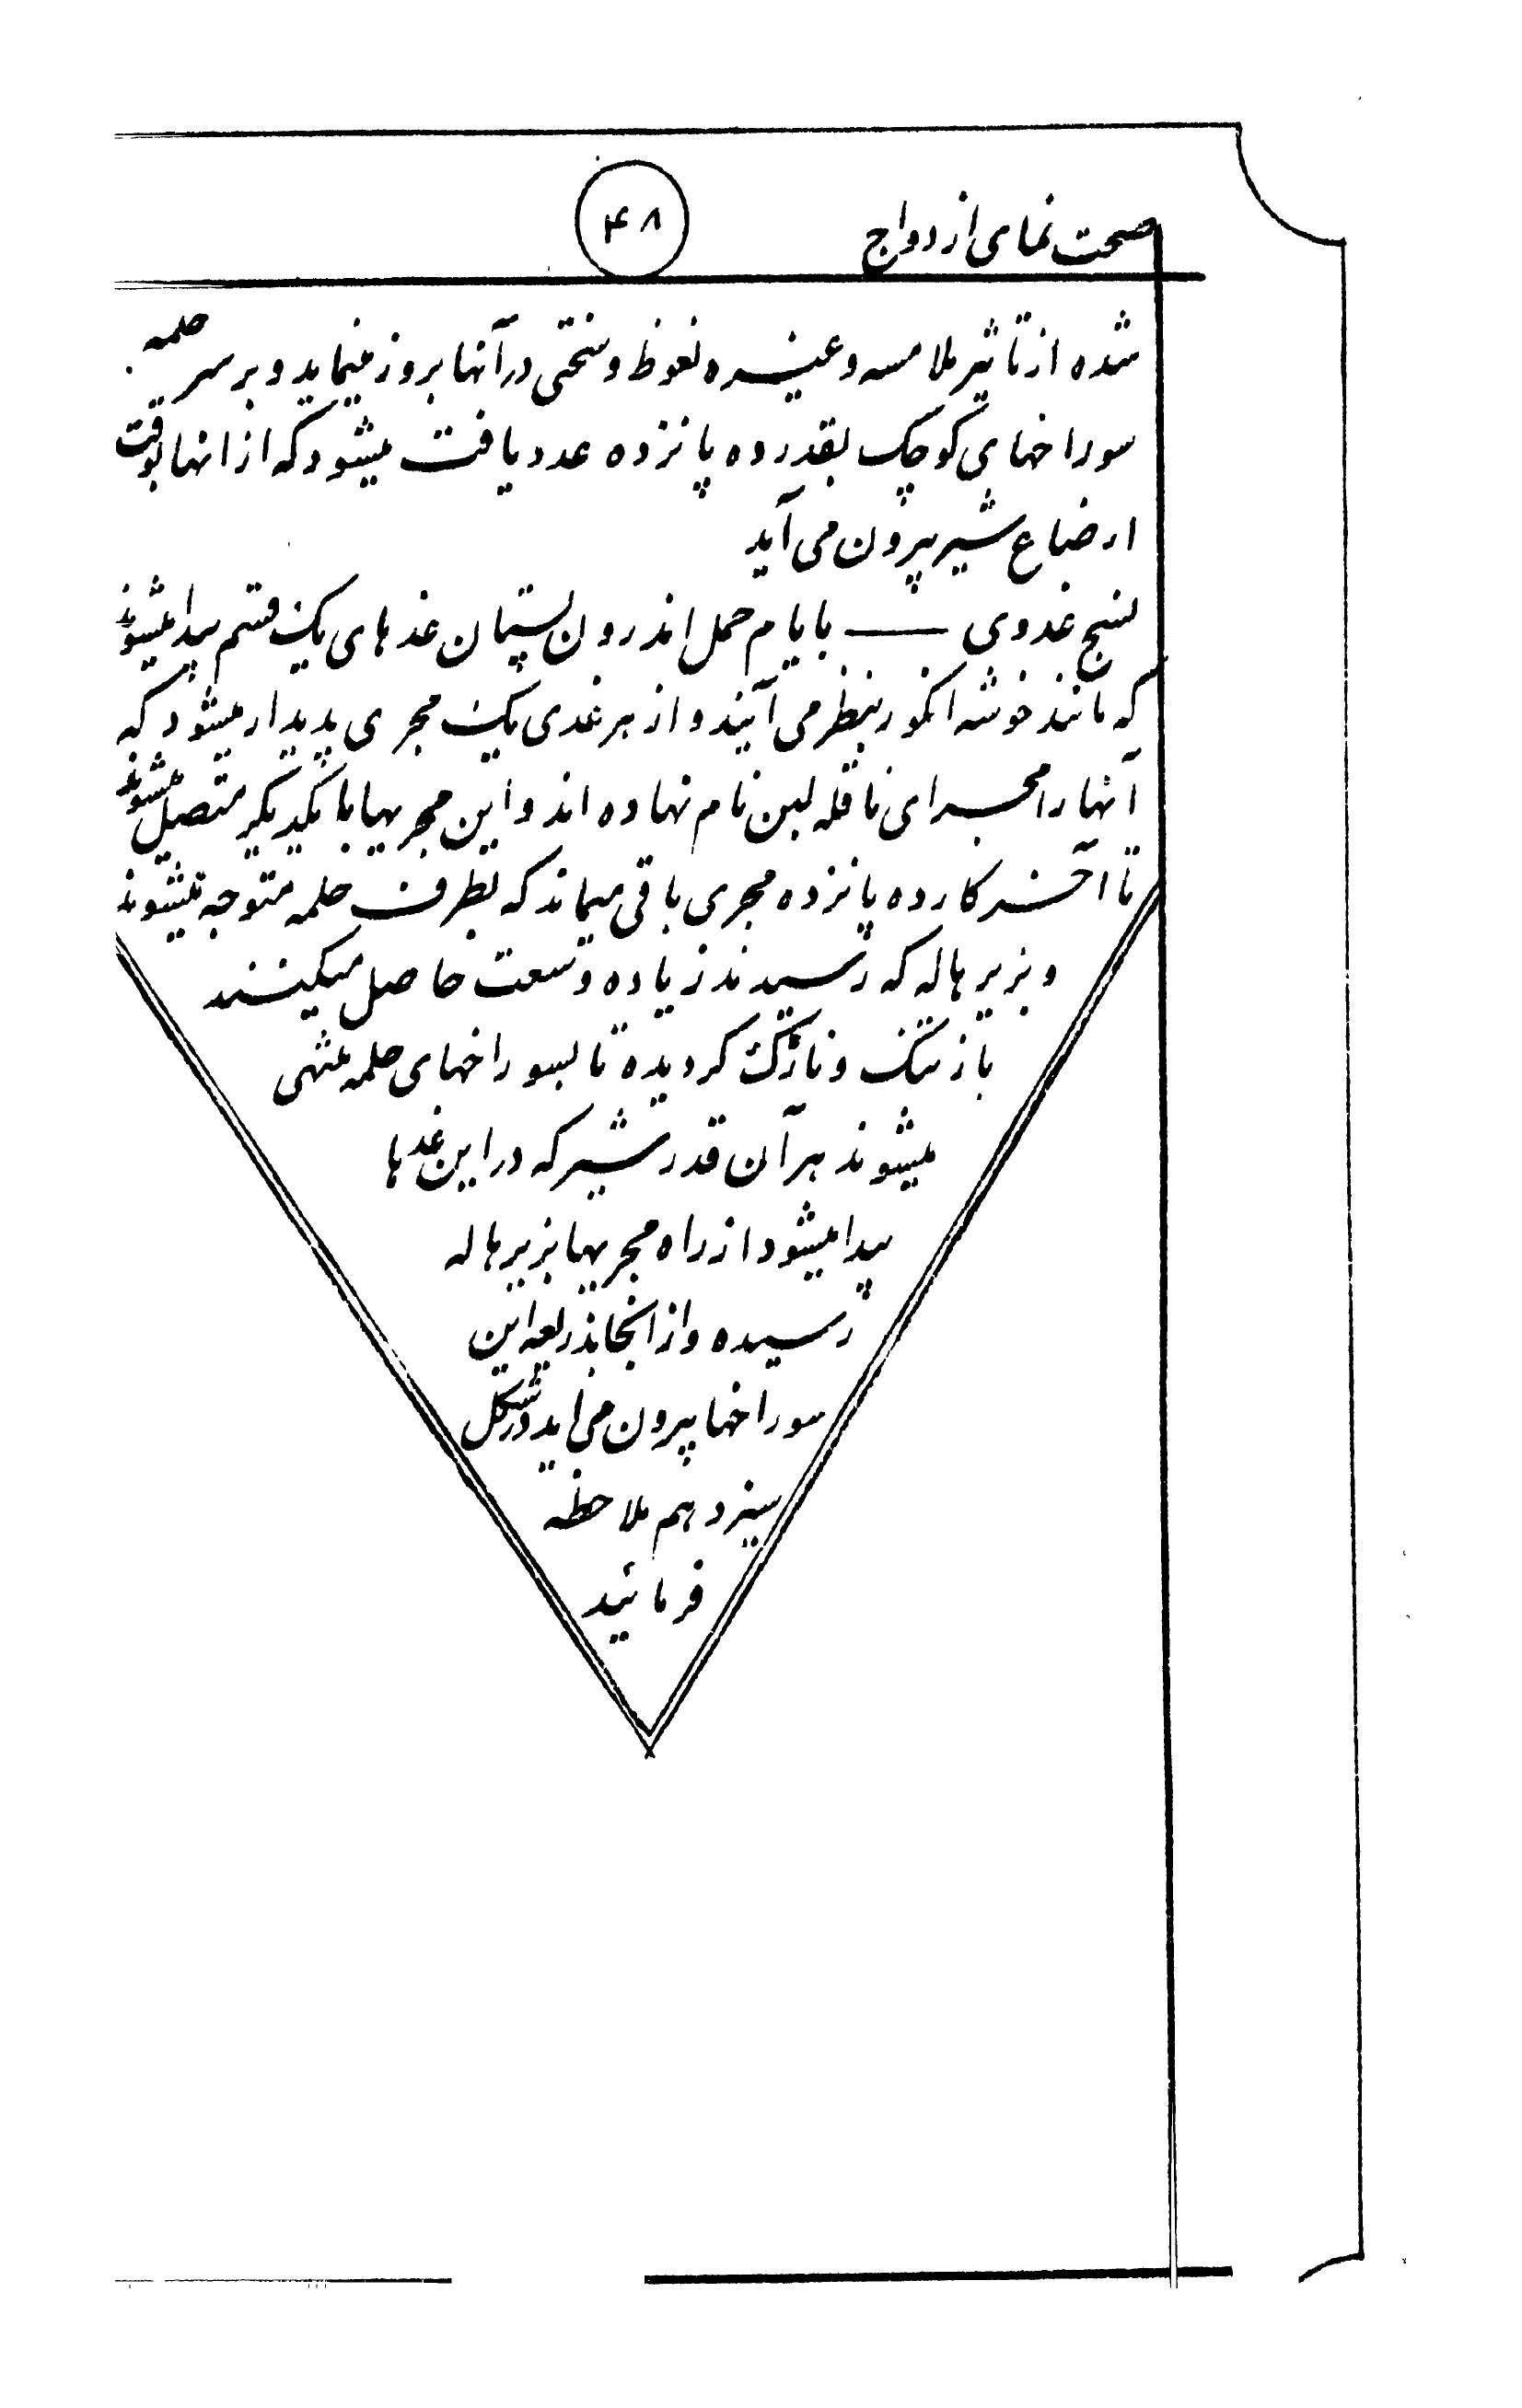 صحت نمای ازدواج
۴۸
شده از تاثیر ملامسه و غیره نعوظ و سختی در آنها بروز مینماید و بر سر حلمه
سوراخهای کوچک بقدر ده پانزده عدد یافت میشود که از انها بوقت
ارضاع شیر بیرون می آید
نسج غدوی — با یام حمل اندرون پستان غدهای یک قسم پیدا میشوند
که مانند خوشه انگور بنظر می آیند و از هر غدی یک مجری پدیدار میشود که
آنها را مجرای ناقله لبن نام نهاده اند و این مجریها با یکدیگر متصل میشوند
تا آخر کار ده پانزده مجری باقی میماند که بطرف حلمه متوجه میشوند
و بزیر هاله که رسیدند زیاده وسعت حاصل میکنند
باز تنگ و نازک گردیده تا بسوراخهای حلمه منتهی
میشوند هر آن قدر شیر که در این غدها
پیدا میشود از راه مجریها بزیر هاله
رسیده و از انجا بذریعه این
سوراخها بیرون می اید در شکل
سیزدهم ملاحظه
فرمائید